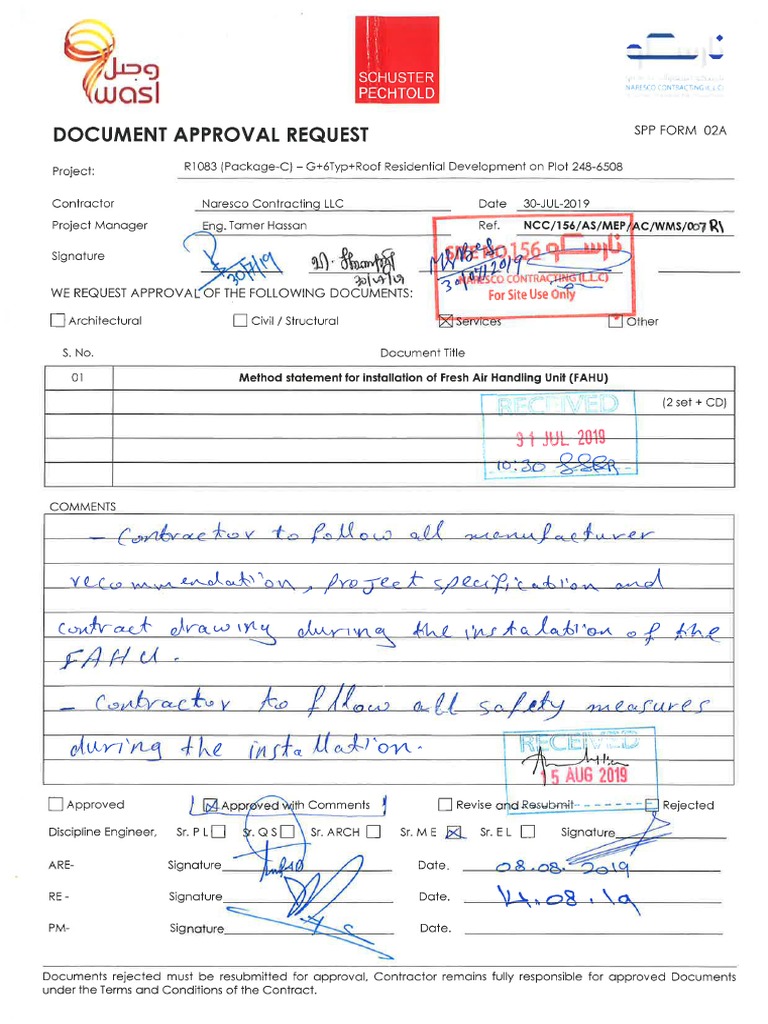 وصل
wasl
SCHUSTER
PECHTOLD
نارسكو
NARESCO CONTRACTING (L.L.C)
DOCUMENT APPROVAL REQUEST
SPP FORM 02A
Project: R1083 (Package-C) – G+6Typ+Roof Residential Development on Plot 248-6508
Contractor Naresco Contracting LLC Date 30-JUL-2019
Project Manager Eng. Tamer Hassan Ref. NCC/156/AS/MEP/AC/WMS/007 R1
Signature 30/7/19
SITE NO 156 نارسكو
NARESCO CONTRACTING (L.L.C)
For Site Use Only
WE REQUEST APPROVAL OF THE FOLLOWING DOCUMENTS:
Architectural Civil / Structural Services Other
S. No. Document Title
01 Method statement for installation of Fresh Air Handling Unit (FAHU)
(2 set + CD)
RECEIVED
31 JUL 2019
10:30
COMMENTS
- Contractor to follow all manufacturer
recommendation, project specification and
contract drawing during the instalation of the
FAHU.
- Contractor to fllow all safety measures
during the installation.
RECEIVED
15 AUG 2019
Approved Approved with Comments Revise and Resubmit Rejected
Discipline Engineer, Sr. P L Sr. Q S Sr. ARCH Sr. M E Sr. E L Signature
ARE- Signature Date. 08.08.2019
RE - Signature Date. 14.08.19
PM- Signature Date.
Documents rejected must be resubmitted for approval, Contractor remains fully responsible for approved Documents
under the Terms and Conditions of the Contract.